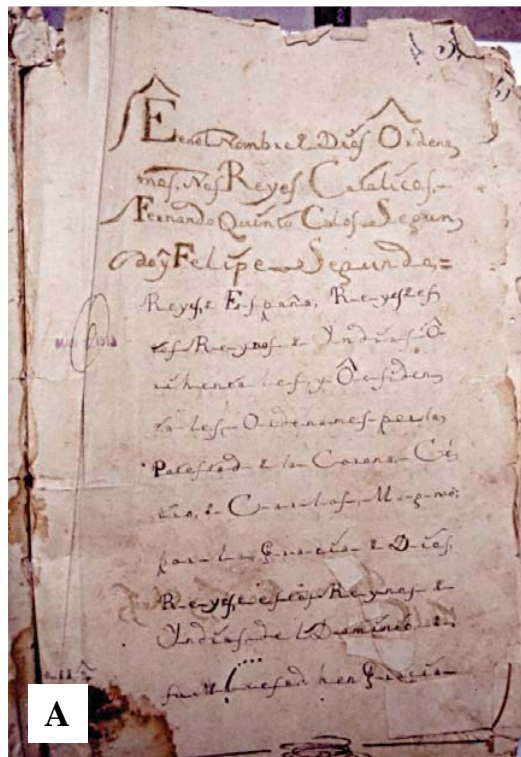 En el Nombre de Dios Ordena,
mos, Nos Reyes Catalicos,
Fernando Quinto Calos Segun,
do y Felipe Segundo =
Reyes, de España, Reyes de es
tos Reynos de Yndias Ô
rihentales, y Ôcsiden
tales, Ordenamos por la
Potestad de la Corona, Cé
por la Gracia de Dios,
Reyes, de estos Reynos de
Yndias, de el Dominio de
su Mersed hen Gracia
A